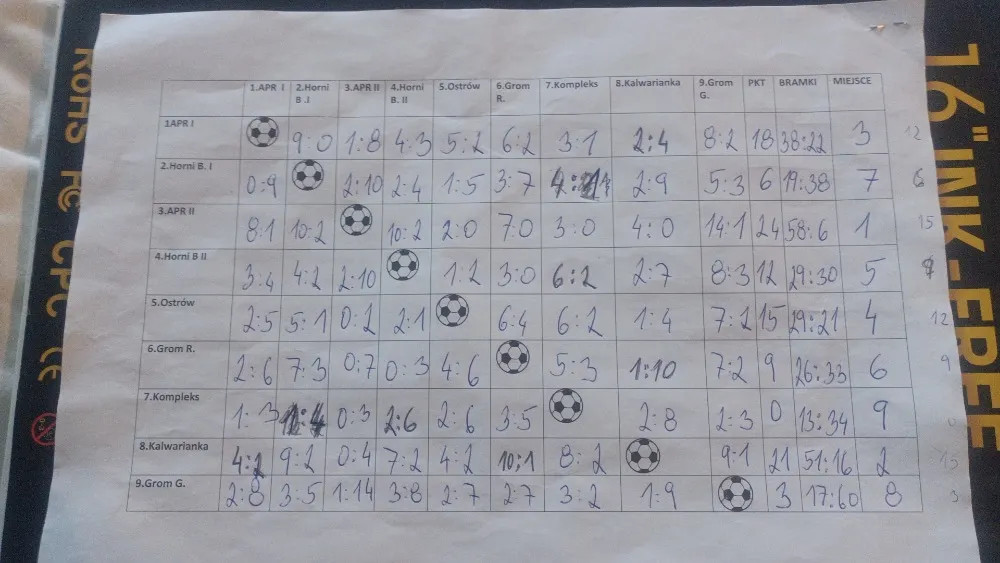 1.APR I 2.Horni B .I 3.APR II 4.Horni B. II 5.Ostrów 6.Grom R. 7.Kompleks 8.Kalwarianka 9.Grom G. PKT BRAMKI MIEJSCE
1APR I 9:0 1:8 4:3 5:2 6:2 3:1 2:4 8:2 18 38:22 3 12
2.Horni B. I 0:9 2:10 2:4 1:5 3:7 2:9 5:3 6 19:38 7 6
3.APR II 8:1 10:2 10:2 2:0 7:0 3:0 4:0 14:1 24 58:6 1 15
4.Horni B II 3:4 4:2 2:10 1:2 3:0 6:2 2:7 8:3 12 29:30 5
5.Ostrów 2:5 5:1 0:2 2:1 6:4 6:2 1:4 7:2 15 29:21 4 12
6.Grom R. 2:6 7:3 0:7 0:3 4:6 5:3 1:10 7:2 9 26:33 6 9
7.Kompleks 1:3 0:3 2:6 2:6 3:5 2:8 2:3 0 13:34 9 0
8.Kalwarianka 4:2 9:2 0:4 7:2 4:2 10:1 8:2 9:1 21 51:16 2 15
9.Grom G. 2:8 3:5 1:14 3:8 2:7 2:7 3:2 1:9 3 17:60 8 3
RoHS FC CPC CE
16" INK-FREE